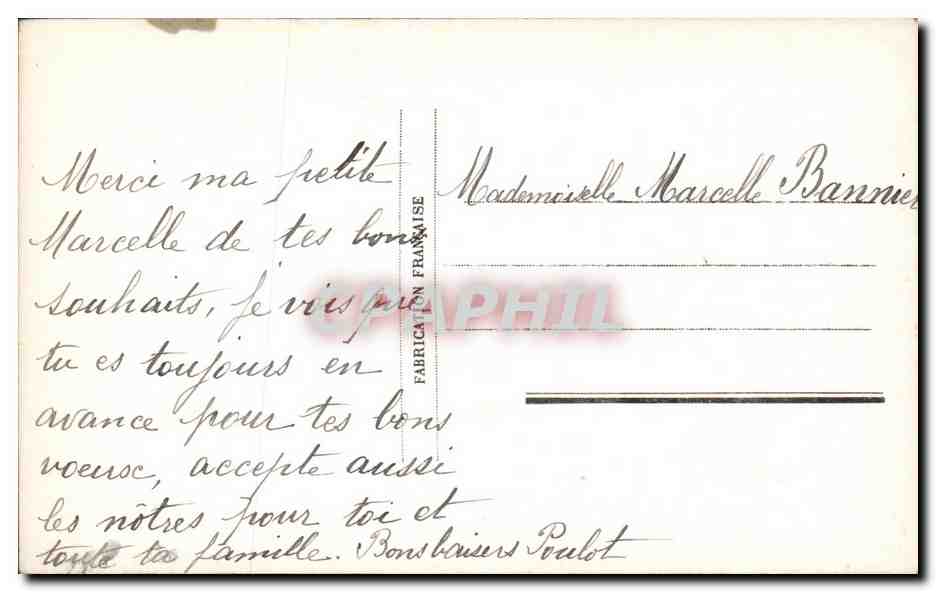 Merci ma petite
Marcelle de tes bons
souhaits, je vois que
tu es toujours en
avance pour tes bons
voeusx, accepte aussi
les nôtres pour toi et
toute ta famille. Bons baisers Poulot
FABRICATION FRANÇAISE
Mademoiselle Marcelle Bannier
CPAPHIL